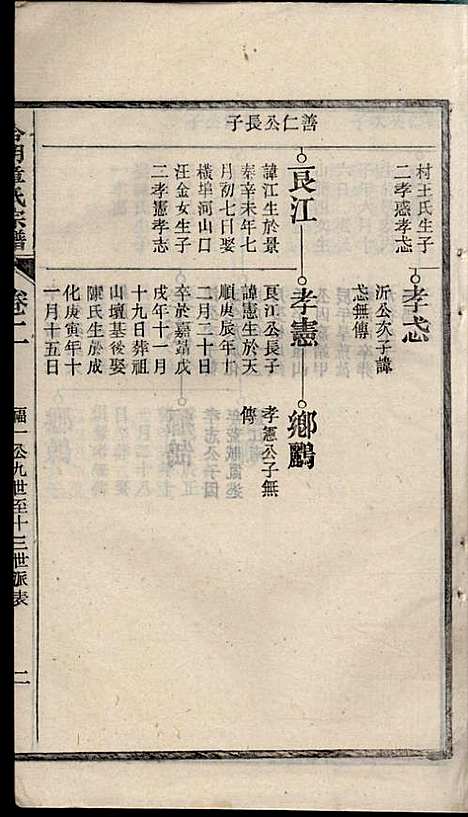 善仁公長子
村王氏生子
二孝惑孝忒
孝忒
沂公次子諱
忒無傳
良江
諱江生於景
泰辛未年七
月初七日娶
橫埠河山口
汪金女生子
二孝憲孝志
孝憲
良江公長子
諱憲生於天
順庚辰年十
二月二十日
卒於嘉靖戊
戌年十一月
十九日葬祖
山壇基後娶
陳氏生於成
化庚寅年十
一月十五日
鄉鸝
孝憲公子無
傳
章氏宗譜
卷二
福一公九世至十三世派表
二